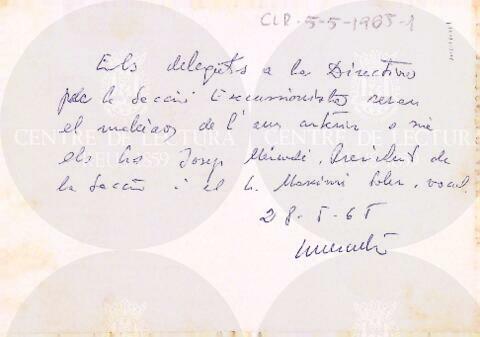 CLR-5-5-1965-1
Els delegats a la Directiva
per la Secció Excursionista seran
el mateixos de l'any anterior o sia
els Srs Josep Miracle, President de
la Secció i el Sr. Maximí Soler, vocal.
28-5-65
CENTRE DE LECTURA
REUS 1859
CENTRE DE LECTURA